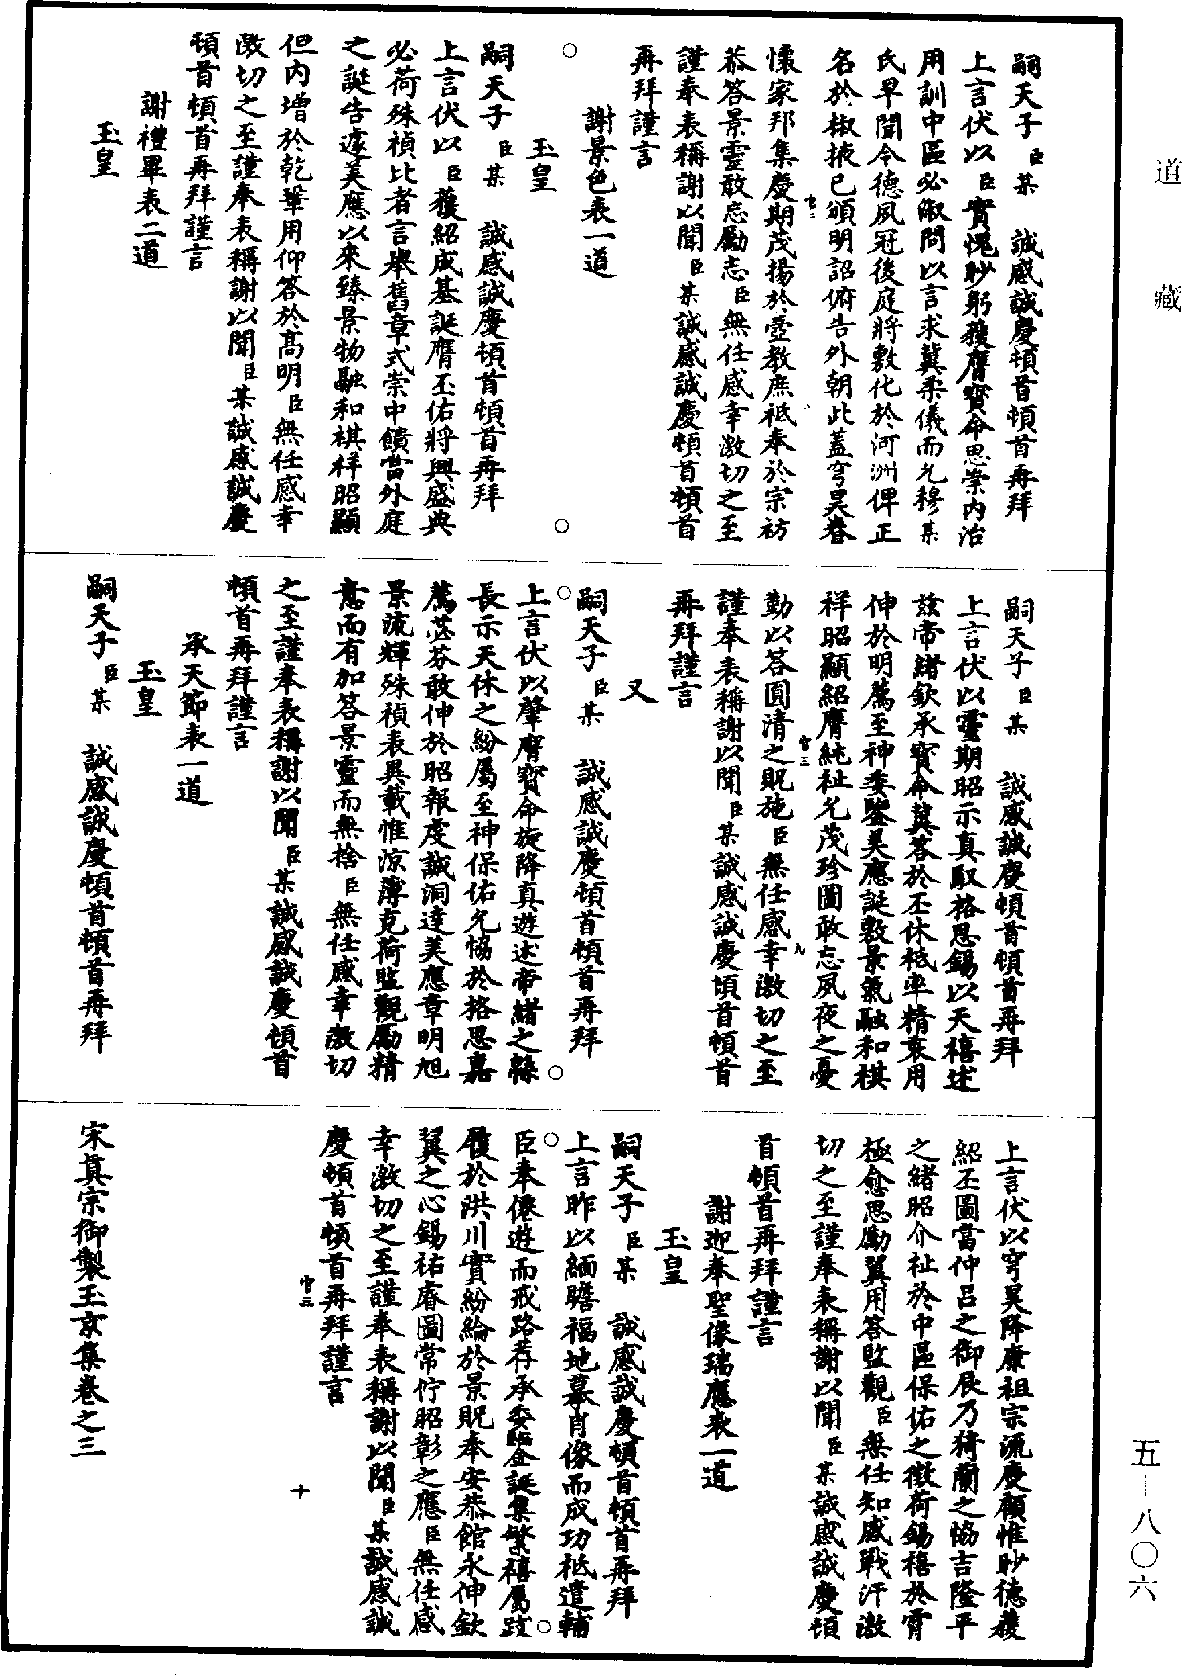 道藏
嗣天子臣某　誠感誠慶頓首頓首再拜
上言伏以臣實愧眇躬獲膺寶命思崇內治
用訓中區必俶問以言求冀柔儀而允穆某
氏早聞令德夙冠後庭將敷化於河洲俾正
名於椒掖已頒明詔俯告外朝此蓋穹昊眷
懷家邦集慶期茂揚於壼教庶祗奉於宗祊
恭答景靈敢忘勵志臣無任感幸激切之至
謹奉表稱謝以聞臣某誠感誠慶頓首頓首
再拜謹言
謝景色表一道
玉皇
嗣天子臣某　誠感誠慶頓首頓首再拜
上言伏以臣獲紹成基誕膺丕佑將興盛典
必荷殊禎比者言舉舊章式崇中饋當外庭
之誕告遽美應以來臻景物融和祺祥昭顯
但內增於乾鞏用仰答於高明臣無任感幸
激切之至謹奉表稱謝以聞臣某誠感誠慶
頓首頓首再拜謹言
謝禮畢表二道
玉皇
嗣天子臣某　誠感誠慶頓首頓首再拜
上言伏以靈期昭示真馭格思錫以天禧述
茲帝緒欽承寶命冀答於丕休祗率精衷用
伸於明薦至神委鑒美應誕敷景氣融和祺
祥昭顯紹膺純祉允茂珍圖敢忘夙夜之憂
勤以答圓清之貺施臣無任感幸激切之至
謹奉表稱謝以聞臣某誠感誠慶頓首頓首
再拜謹言
又
嗣天子臣某　誠感誠慶頓首頓首再拜
上言伏以肇膺寶命旋降真遊述帝緒之緜
長示天休之紛屬至神保佑允協於格思嘉
薦苾芬敢伸於昭報虔誠洞達美應章明旭
景流輝殊禎表異載惟涼薄克荷監觀勵精
意而有加答景靈而無捨臣無任感幸激切
之至謹奉表稱謝以聞臣某誠感誠慶頓首
頓首再拜謹言
承天節表一道
玉皇
嗣天子臣某　誠感誠慶頓首頓首再拜
上言伏以穹昊降康祖宗流慶顧惟眇德獲
紹丕圖當仲呂之御辰乃猗蘭之協吉隆平
之緒昭介祉於中區保佑之徵荷錫禧於霄
極愈思勵翼用答監觀臣無任知感戰汗激
切之至謹奉表稱謝以聞臣某誠感誠慶頓
首頓首再拜謹言
謝迎奉聖像瑞應表一道
玉皇
嗣天子臣某　誠感誠慶頓首頓首再拜
上言昨以緬瞻福地摹肖像而成功祗遣輔
臣奉僊遊而戒路荐承委鑒誕集繁禧屬跋
履於洪川實紛綸於景貺奉安恭館永伸欽
翼之心錫祐睿圖常佇昭彰之應臣無任感
幸激切之至謹奉表稱謝以聞臣某誠感誠
慶頓首頓首再拜謹言
十
宋真宗御製玉京集卷之三
五—八〇六